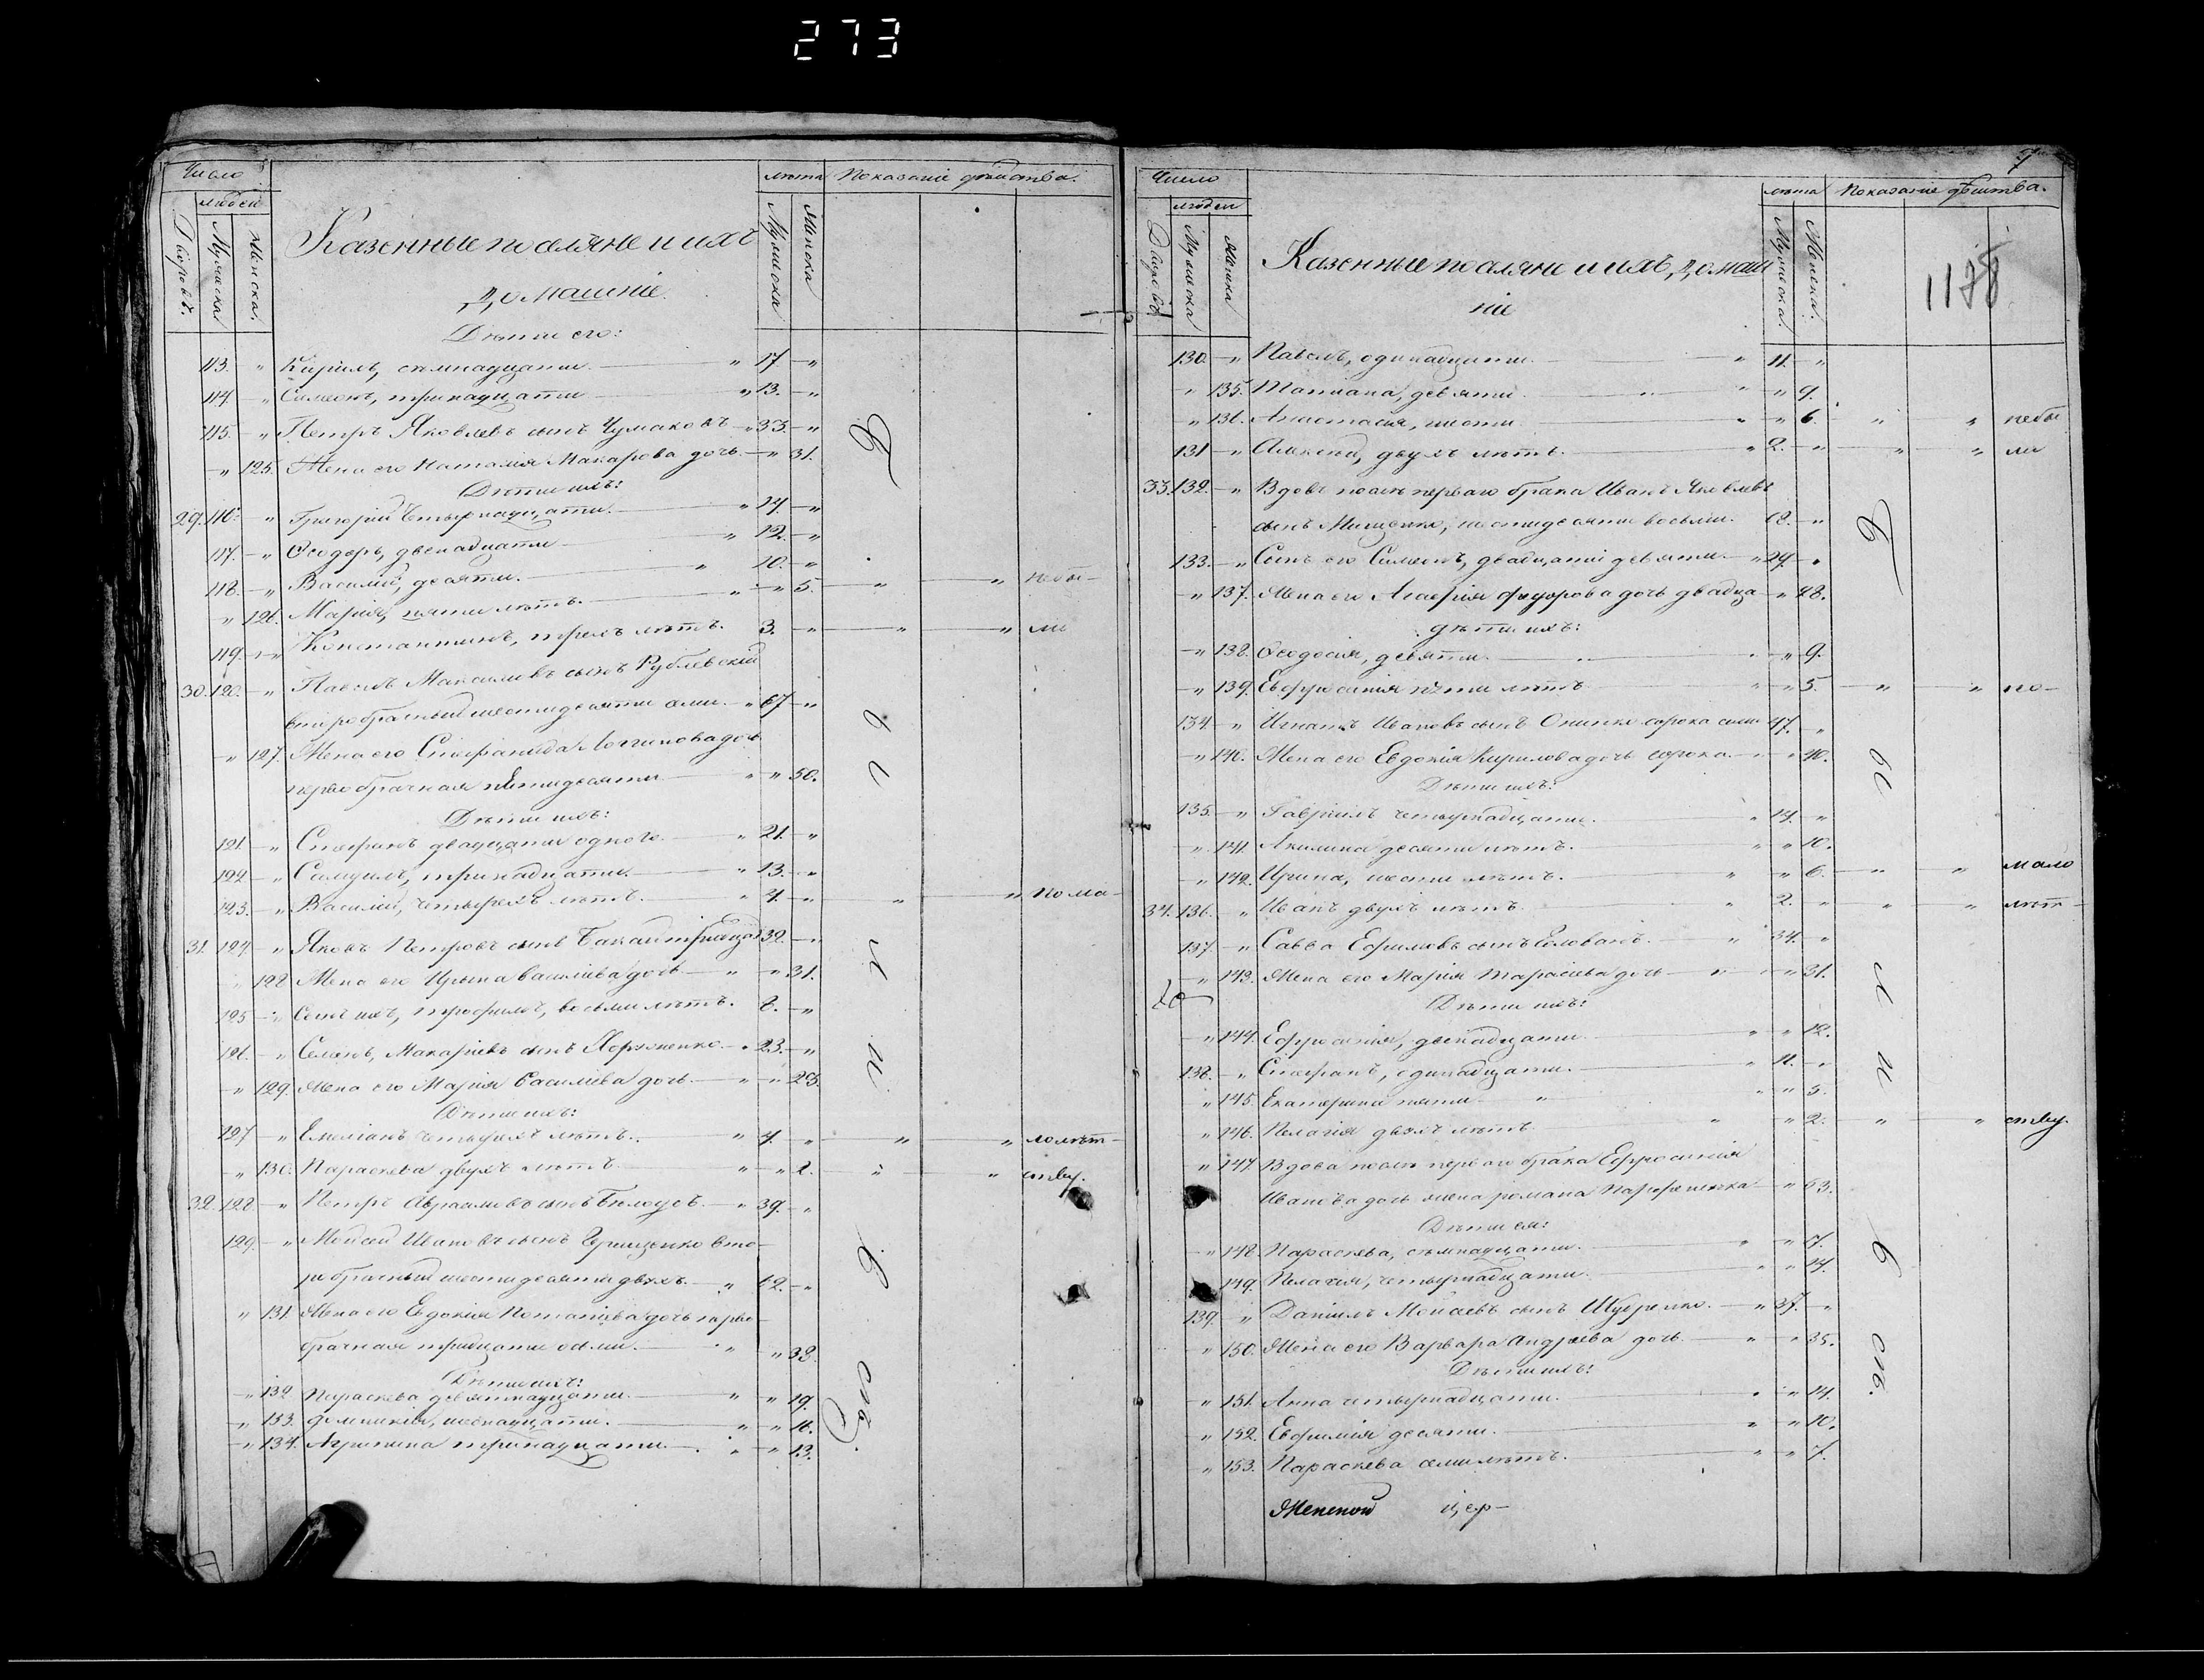 273
Число
людей
Дворовъ.
Мужеска
Женска.
Казенные поселяне и ихъ
домашніе.
лѣта
Мужеска
Женска
Показаніе дѣйства.
Дѣти его:
113. " Кирилъ, семнадцати. " 17 "
114. " Симеонъ, тринадцати " 13. "
115. " Петръ Яковлевъ сынъ Чумаковъ " 33. "
" 125. Жена его Наталія Макарова дочь. " 31.
Дѣти ихъ:
29. 116. " Григорій четырнадцати. " 14. "
117. " Ѳеодоръ, двенадцати " 12. "
118. " Василій, десяти. " 10. "
" 126. Марія, пяти лѣтъ. " " 5. " " небы-
119. " Константинъ, трехъ лѣтъ. 3. " " " ли
30. 120. " Павелъ Максимовъ сынъ Рублевскій
второбрачный шестидесяти семи. " 67 "
" 127. Жена его Стефанида Логгинова дочь
первобрачная пятидесяти " " 50.
Дѣти ихъ:
121. " Стефанъ двадцати одного. " 21. "
122. " Самуилъ, тринадцати. " 13. "
123. " Василій, четырехъ лѣтъ. " 4. " " " по ма-
31. 124. " Яковъ Петровъ сынъ 32. "
" 128 Жена его Ирина Василіева дочь " " 31.
125 " Сынъ ихъ, Трофимъ, восьми лѣтъ. 8. "
126. " Семенъ, Макаріевъ сынъ " 23. "
" 129. Жена его Марія Василіева дочь. " " 23.
Дѣти ихъ:
127 " Емеліанъ четырехъ лѣтъ. " 4. " " " лолѣт-
" 130. Параскева двухъ лѣтъ " " 2. " " ству.
32. 128. " Петръ Авраамовъ сынъ Бѣлоусъ. " 39. "
129. " Мойсей Ивановъ сынъ Грищенко вто-
робрачный шестидесяти двухъ. " 62. "
" 131. Жена его Евдокія Потапіева дочь перво-
брачная тридцати осми. " " 38.
Дѣти ихъ:
" 132 Параскева девятнадцати. " " 19.
" 133. шеснадцати. " " 16.
" 134. Агрипина тринадцати. " " 13.
Б ы л и в съ.
7
Число
людей
Дворовъ
Мужеска
Женска
Казенные поселяне и ихъ, домаш
ніе
лѣта
Мужеска.
Женска.
Показаніе дѣйства.
1178
130. " Павелъ, одинадцати. " 11. "
" 135. Татіана, девяти. " " 9.
" 136. Анастасія, шести " " 6. " " небы
131 " Алексѣй, двухъ лѣтъ. " 2. " " " ли
33. 132. " Вдовъ послѣ перваго брака Иванъ Яковлевъ
сынъ Мищенко, шестидесяти восьми. 68. "
133. " Сынъ его Симеонъ, двадцати девяти. " 29. "
" 137. Жена его Агафія Федорова дочь двадца " 28.
Дѣти ихъ:
" 138. Ѳеодосія, девяти. " " 9.
" 139. Евфросинія пяти лѣтъ " " 5. " " по-
134. " Игнатъ Ивановъ сынъ сорока семи 47. "
" 140. Жена его Евдокія Кирилова дочь сорока. " " 40.
Дѣти ихъ:
135. " Гавріилъ четырнадцати. " 14. "
" 141. Акилина десяти лѣтъ. " " 10.
" 142. Ирина, шести лѣтъ. " " 6. " " мало
34. 136. " Иванъ двухъ лѣтъ. " 2. " " " лѣт-
137. " Савва Ефимовъ сынъ Головань. " 34. "
" 143. Жена его Марія Тарасіева дочь " " 31.
Дѣти ихъ:
" 144. Ефросинія, двенадцати " " 12.
138. " Стефанъ, одинадцати. " 11. "
" 145. Екатерина пяти " " " 5.
" 146. Пелагія двухъ лѣтъ. " " 2. " " ству.
" 147. Вдова послѣ перваго брака Ефросинія
Иванова дочь жена романа " 63.
Дѣти ея:
" 148. Параскева, семнадцати. " " 17.
" 149. Пелагія, четырнадцати. " " 14.
139. " Даніилъ Мойсеевъ сынъ " 37. "
" 150. Жена его Варвара Андреева дочь. " " 35.
Дѣти ихъ:
" 151. Анна четырнадцати. " " 14.
" 152. Евфимія десяти. " " 10.
" 153. Параскева семи лѣтъ. " " 7.
Б ы л и в съ.
цер-